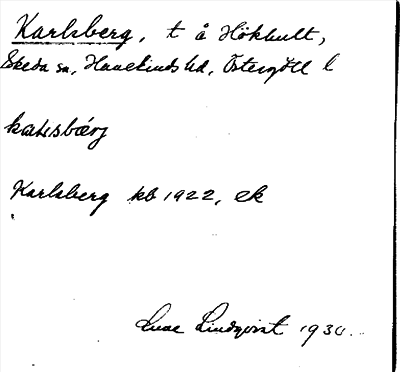 Karlsberg, t å Hökhult,
Skeda sn, Hanekinds hd, Östergötl l
Karlsberg kb 1922, ek
Lindqvist 193